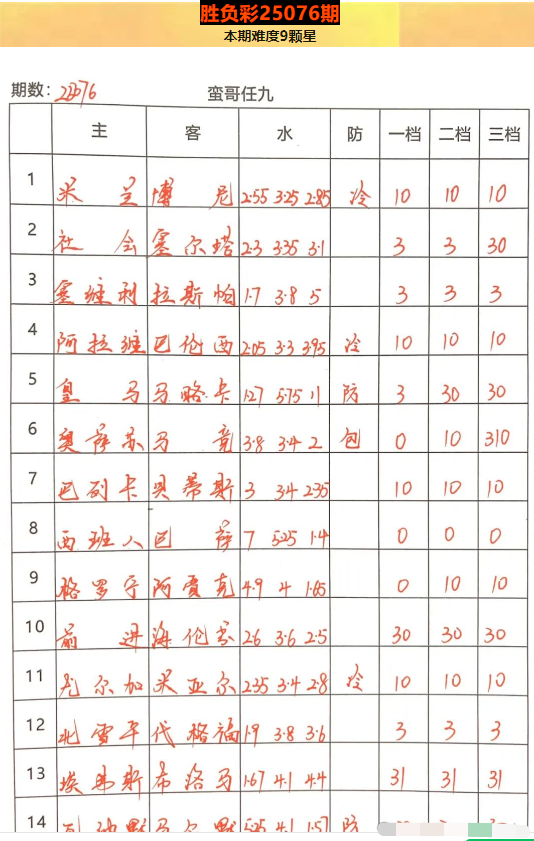 胜负彩25076期
本期难度9颗星
期数: 25076 蛮哥任九
主 客 水 防 一档 二档 三档
1 米兰 博尼 2.55 3.25 2.85 冷 10 10 10
2 社会 塞尔塔 2.3 3.35 3.1 3 3 30
3 塞维利 拉斯帕 1.7 3.8 5 3 3 3
4 阿拉维 巴伦西 2.05 3.3 3.95 冷 10 10 10
5 皇马 马略卡 1.27 5.75 11 防 3 30 30
6 奥萨苏 马竞 3.8 3.4 2 包 0 10 310
7 巴列卡 贝蒂斯 3 3.4 2.35 10 10 10
8 西班人 巴萨 7 5.25 1.4 0 0 0
9 格罗宁 阿贾克 4.9 4 1.65 0 10 10
10 前进 海伦芬 2.6 3.6 2.5 30 30 30
11 尤尔加 米亚尔 2.35 3.4 2.8 冷 10 10 10
12 北雪平 代格福 1.9 3.8 3.6 3 3 3
13 埃弗斯 布洛马 1.67 4.1 4.4 31 31 31
14 5.25 4.1 1.57 防